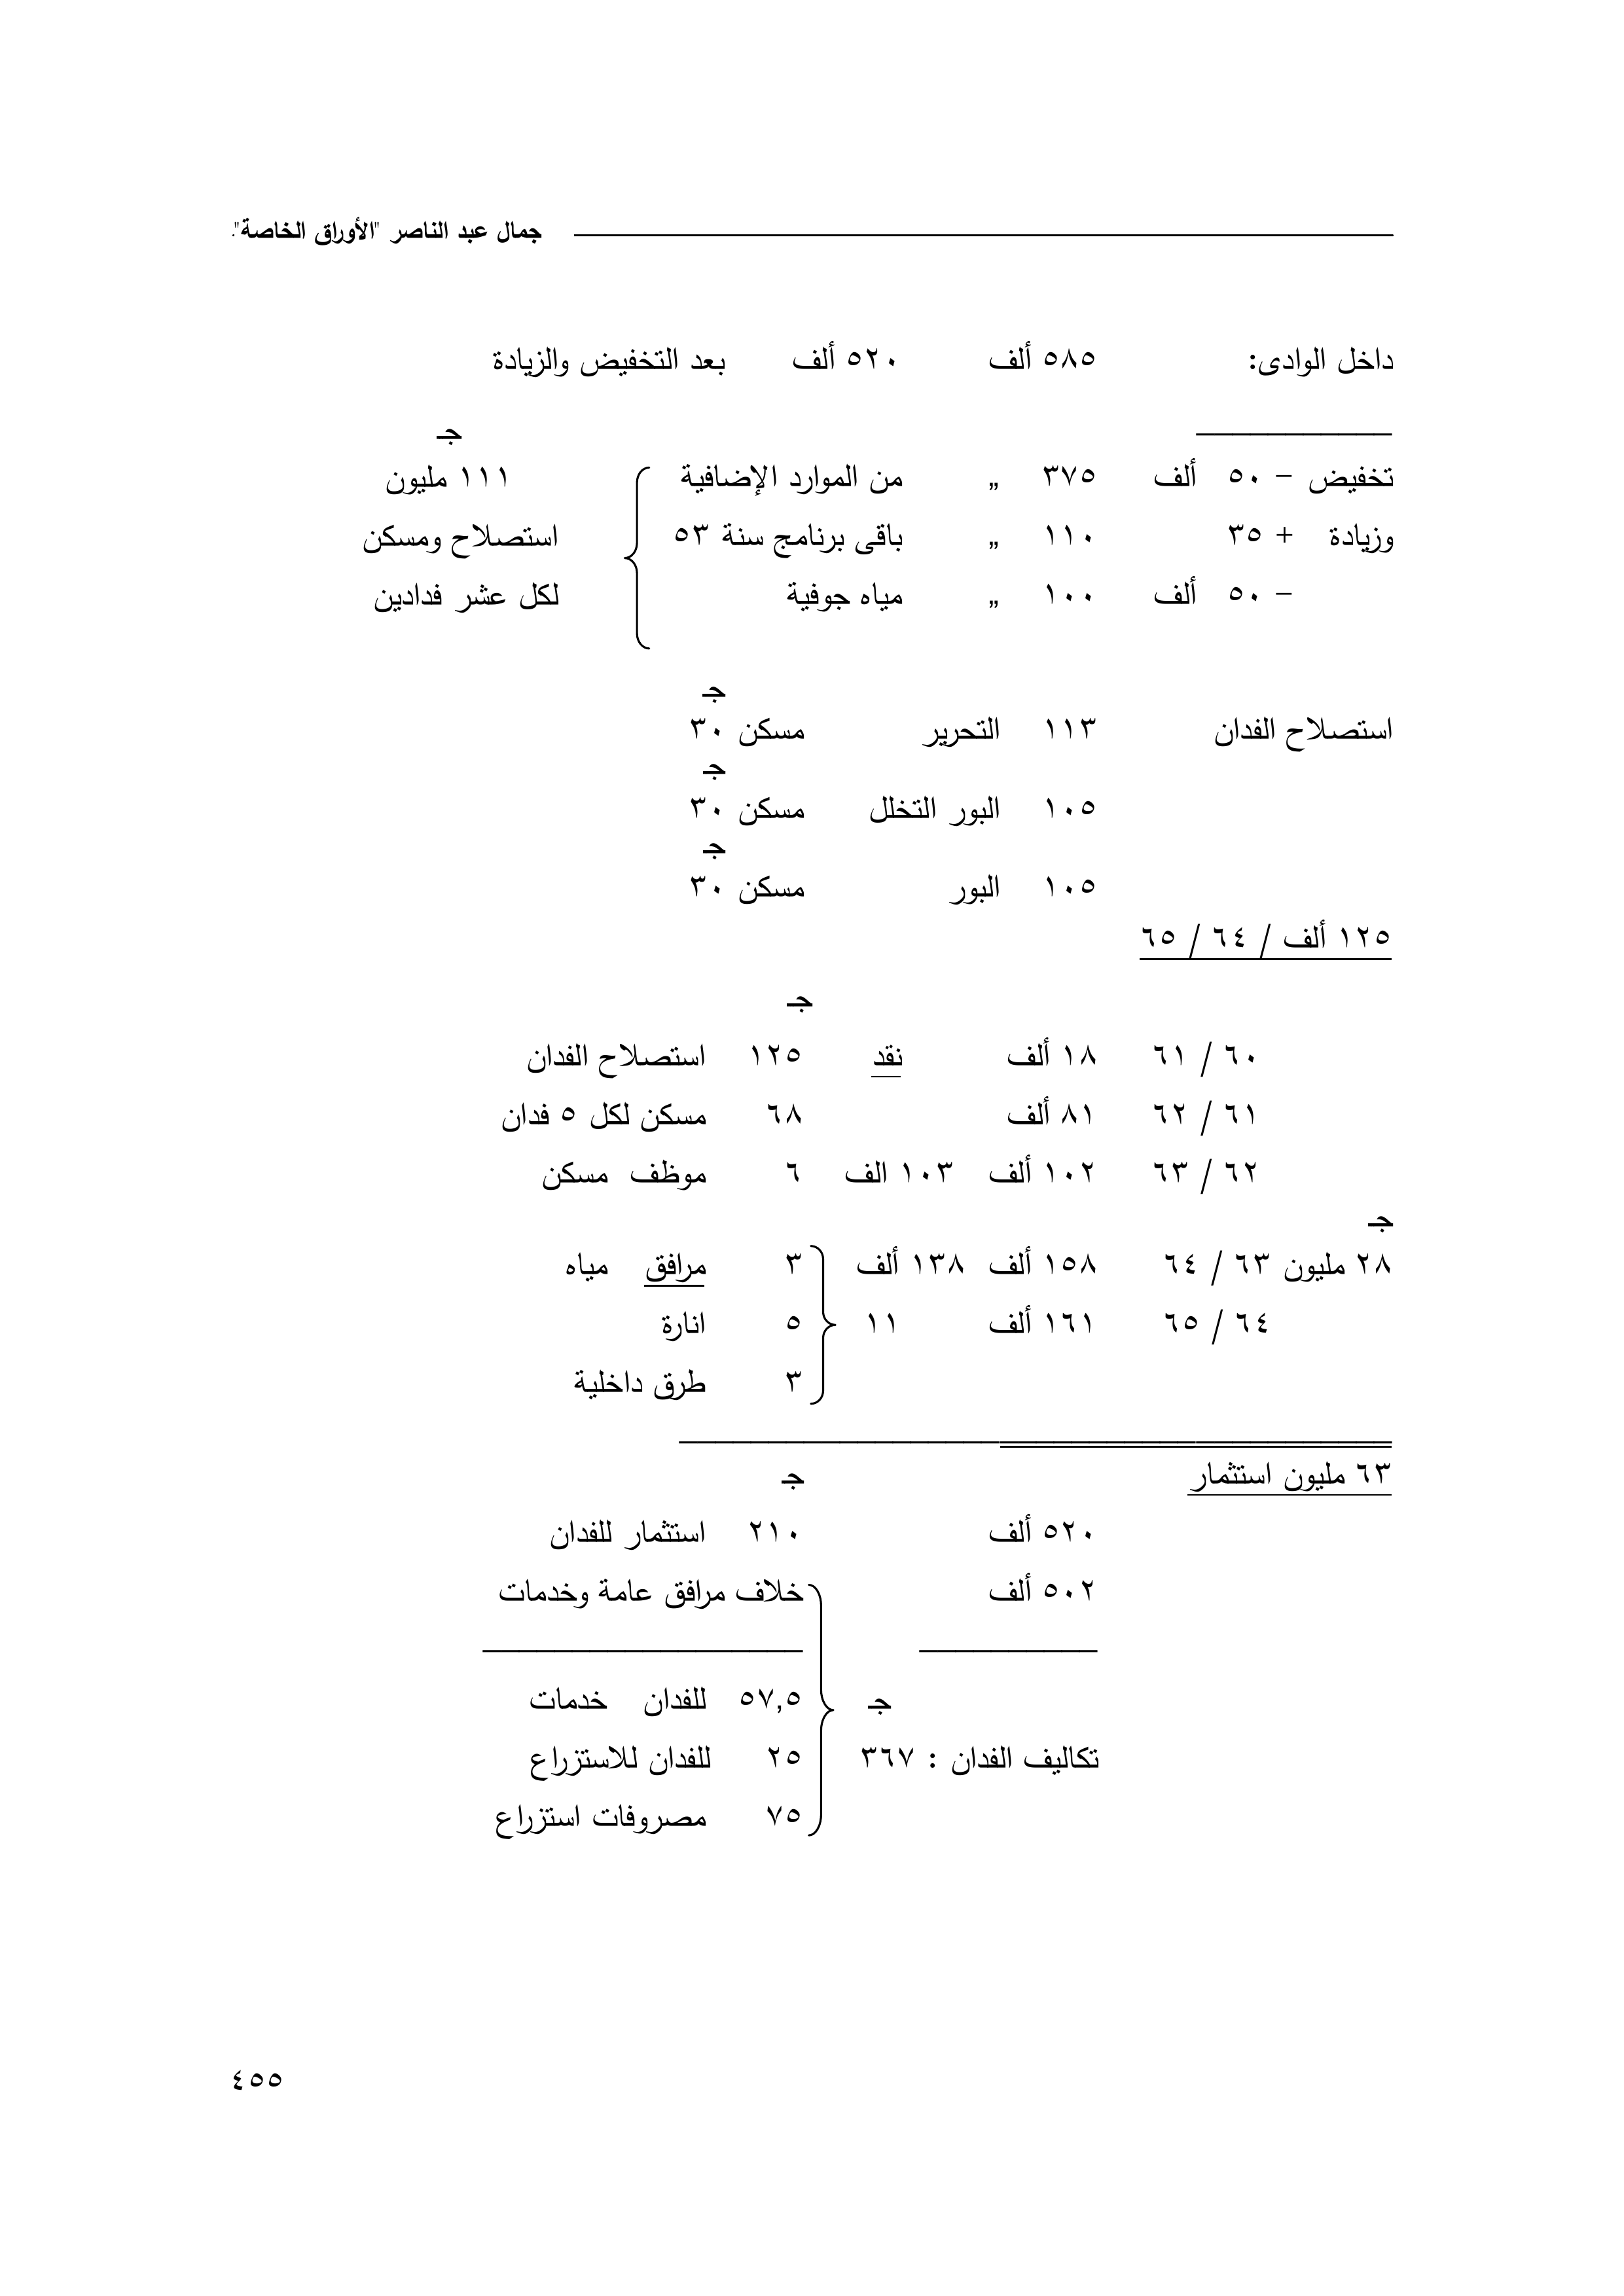 جمال عبد الناصر "الأوراق الخاصة".
داخل الوادى: ٥٨٥ ألف ٥٢٠ ألف بعد التخفيض والزيادة
جـ
تخفيض – ٥٠ ألف ٣٧٥ ,, من الموارد الإضافية ١١١ مليون
وزيادة + ٣٥ ١١٠ ,, باقى برنامج سنة ٥٣ استصلاح ومسكن
– ٥٠ ألف ١٠٠ ,, مياه جوفية لكل عشر فدادين
جـ
استصلاح الفدان ١١٣ التحرير مسكن ٣٠
جـ
١٠٥ البور التخلل مسكن ٣٠
جـ
١٠٥ البور مسكن ٣٠
١٢٥ ألف / ٦٤ / ٦٥
جـ
٦٠ / ٦١ ١٨ ألف نقد ١٢٥ استصلاح الفدان
٦١ / ٦٢ ٨١ ألف ٦٨ مسكن لكل ٥ فدان
٦٢ / ٦٣ ١٠٢ ألف ١٠٣ الف ٦ موظف مسكن
جـ
٢٨ مليون ٦٣ / ٦٤ ١٥٨ ألف ١٣٨ ألف ٣ مرافق مياه
٦٤ / ٦٥ ١٦١ ألف ١١ ٥ انارة
٣ طرق داخلية
٦٣ مليون استثمار جـ
٥٢٠ ألف ٢١٠ استثمار للفدان
٥٠٢ ألف خلاف مرافق عامة وخدمات
جـ ٥٧,٥ للفدان خدمات
تكاليف الفدان : ٣٦٧ ٢٥ للفدان للاستزراع
٧٥ مصروفات استزراع
٤٥٥